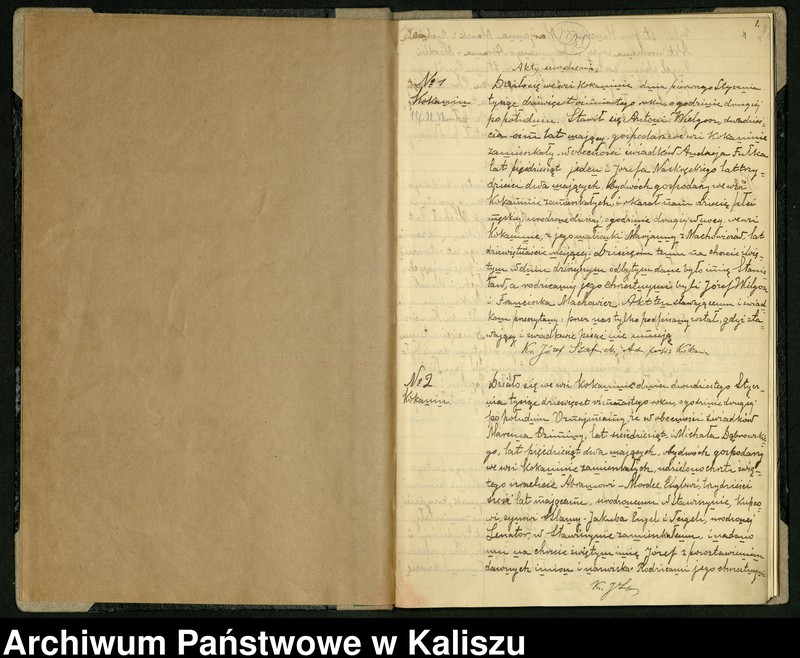 1.
Akty urodzenia
№ 1
Kokanin
Działo się we wsi Kokaninie dnia pierwszego Stycznia
tysiąc dziewięćset ósmnastego roku, o godzinie drugiej
po południu. Stawił się Antoni Wielgosz, dwadzieś-
cia osm lat mający, gospodarz we wsi Kokaninie
zamieszkały, w obecności świadków Andrzeja Fułka
lat pięćdziesiąt jeden i Józefa Naskręckiego lat trzy-
dzieści dwa mających, obydwóch gospodarzy we wsi
Kokaninie zamieszkałych, i okazał nam dziecię płci
męskiej urodzone dzisiaj, o godzinie drugiej w nocy, we wsi
Kokaninie, z jego małżonki Marjanny z lat
dziewiętnaście mającej. Dziecięciu temu na chrzcie świę-
tym w dniu dzisiejszym odbytym dane było imię Stanis-
ław, a rodzicami jego chrzestnymi byli Józef Wielgosz
i Franciszka Machowicz. Akt ten stawającemu i świad-
kom przeczytany, przez nas tylko podpisany został, gdyż sta-
wający i świadkowie pisać nie umieją.
Ks. Józef
№ 2
Kokanin
Działo się we wsi Kokaninie dnia dwudziestego Stycz-
nia tysiąc dziewięćset ósmnastego roku, o godzinie drugiej
po południu. Oznajmiamy, że w obecności świadków
Marcina lat i Michała Dąbrowskie-
go, lat pięćdziesiąt dwa mających, obydwóch gospodarzy
we wsi Kokaninie zamieszkałych, udzielono chrztu świę-
tego izraelicie Abramowi-Mordce Englowi, trzydzieści
sześć lat mającemu, urodzonemu w Stawiszynie, kupco-
wi, synowi Szlamy-Jakuba Engel i urodzonej
Senator, w Stawiszynie zamieszkałemu i nadano
mu na chrzcie świętym imię Józef z pozostawieniem
dawnych imion i nazwiska. Rodzicami jego chrzestnymi
Archiwum Państwowe w Kaliszu